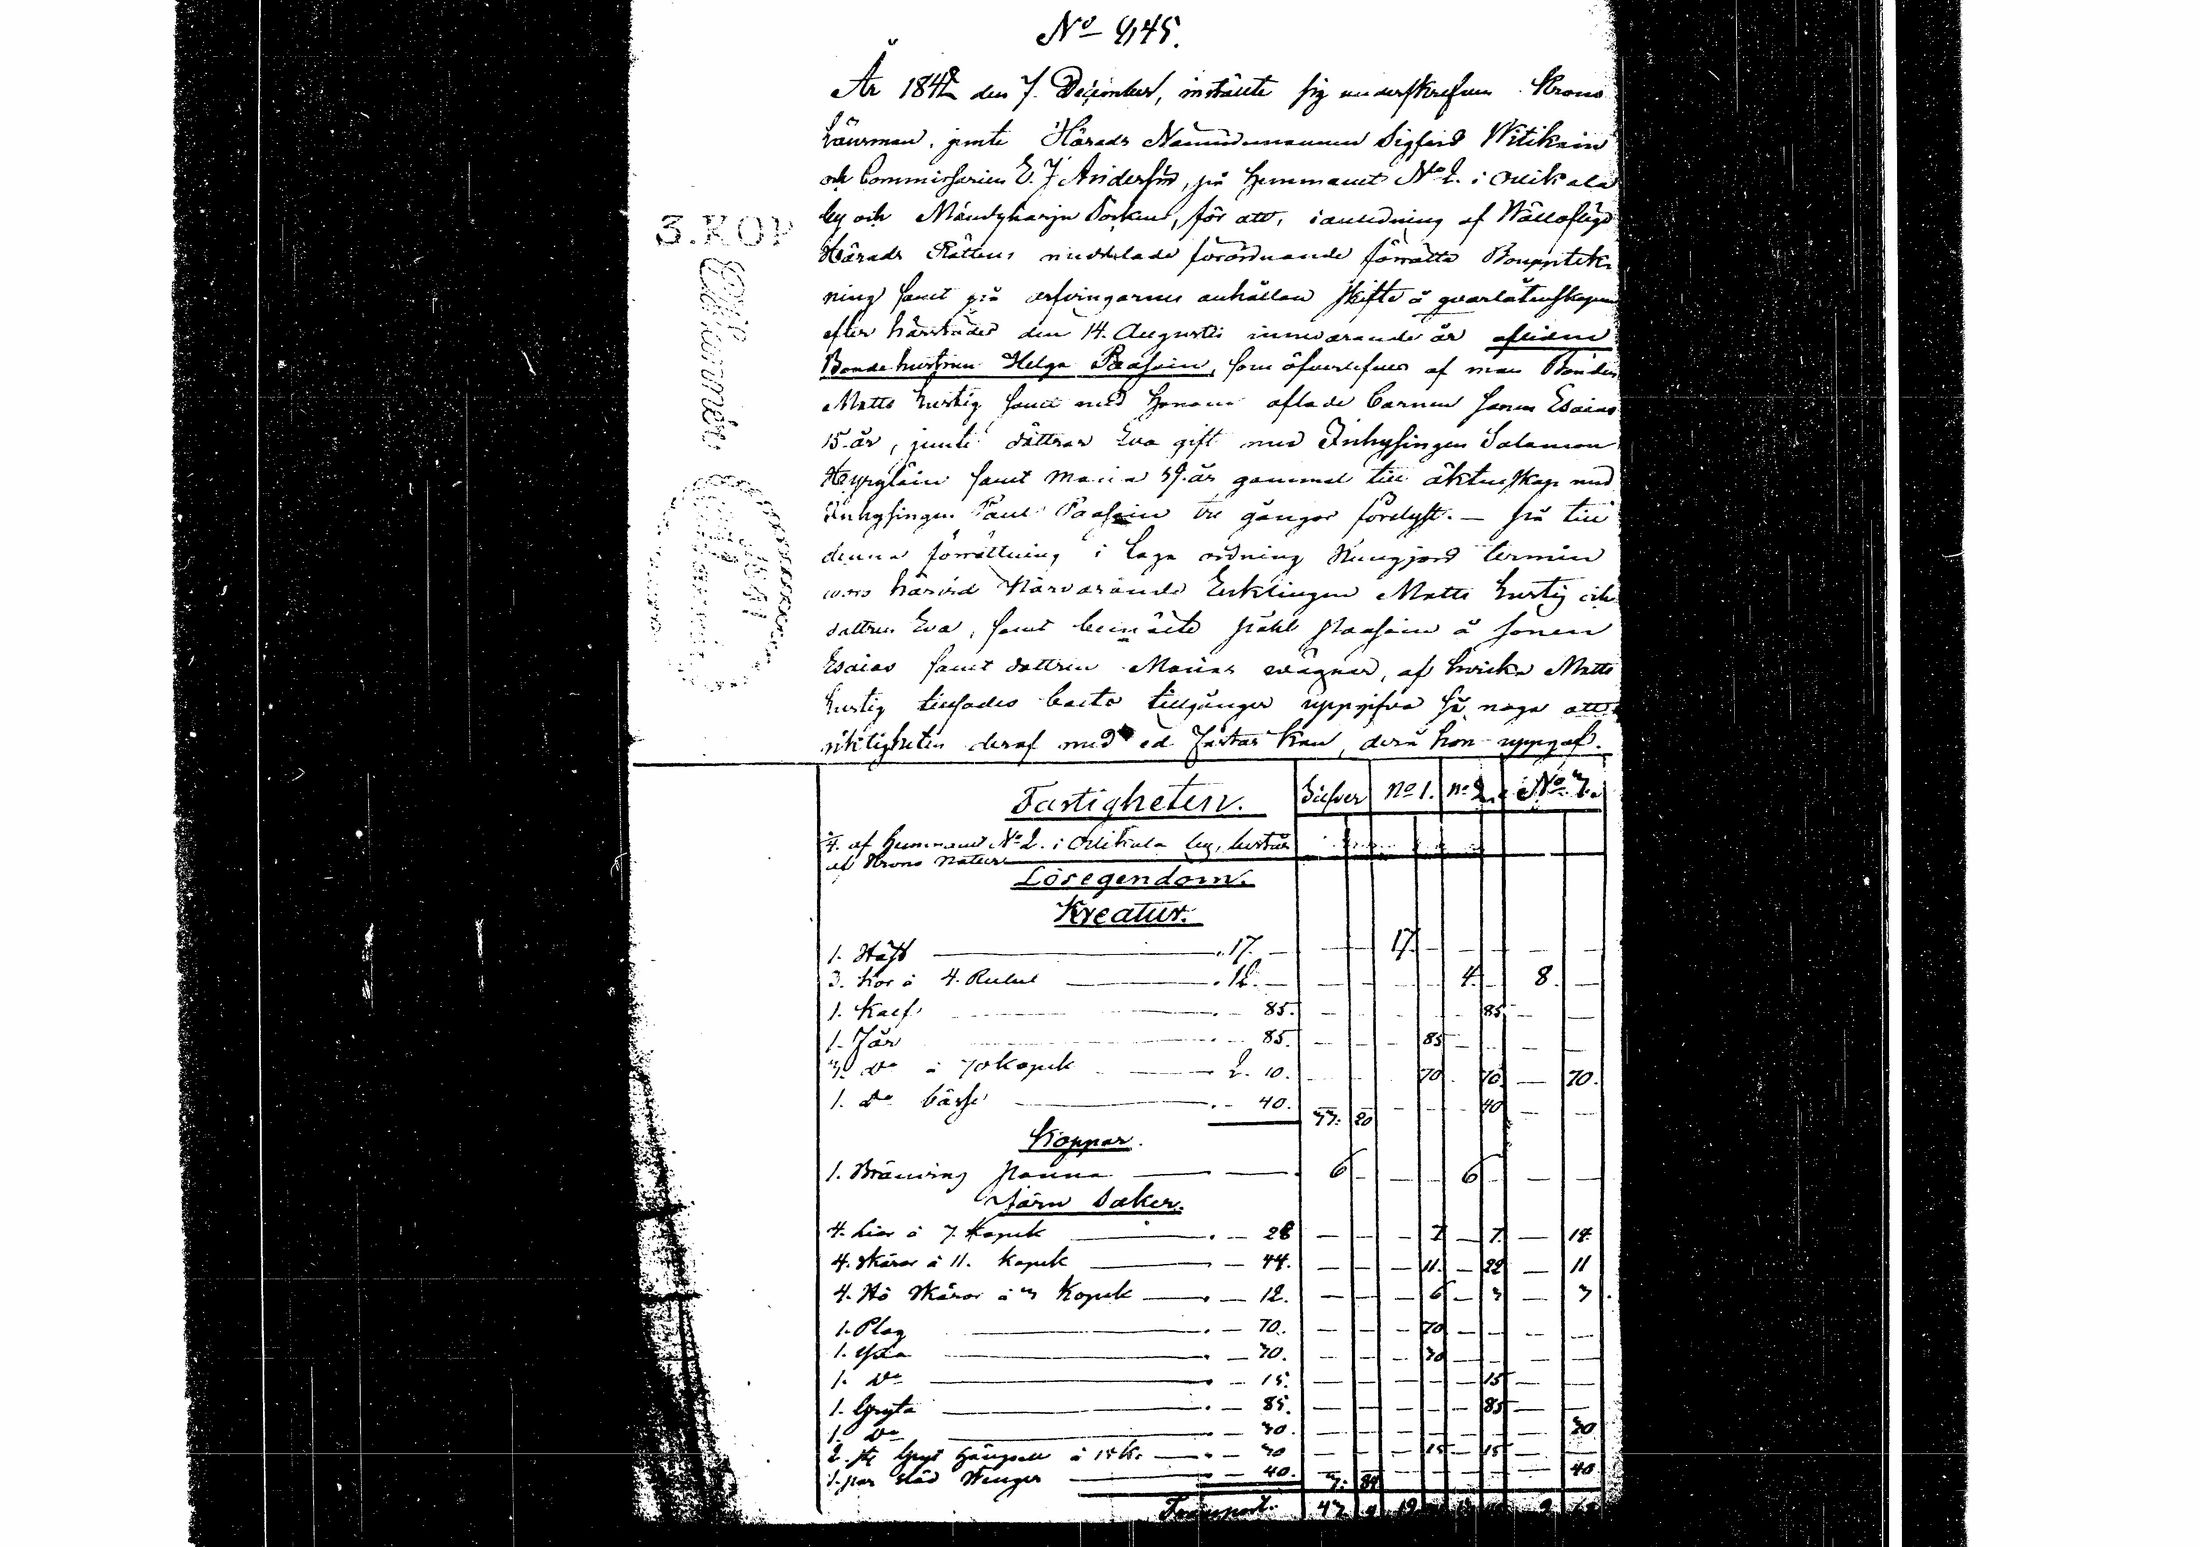 No 445.
År 1842 den 7. December, instälte sig underskrefven Krono
Länsman, jemte Härads Nämndemannen Sigfrid Witikain
och Commissarien E. J. Andersin, på hemmanet No 2. i Ollikala
by och Mäntyharju Socken, för att, i anledning af Wällofliga
Härads Rättens meddelade förordnande förrätta Bouppteck-
ning samt på arfvingarnes anhållan skifte å qvarlåtenskapen
efter härstädes den 14. Augusti innevarande år aflidne
Bonde hustrun Helga Paasoin, som öfverlefves af man Bonden
Matts Hurtig samt med honom aflade barnen sonen Esaias
15. år, jemte döttrar Eva gift med Inhysingen Salomon
samt Maria år gammal till äktenskap med
Inhysingen Paul Paasoin tre gångor förelyst. — På till
denna förrättning i laga ordning kungjord termin
woro härvid Närvarande Enklingen Matts Hurtig och
dottren Eva, samt bemälte Påhl Paasoin å sonen
Esaias samt dottren Marias wägnar, af hvilka Matts
Hurtig tillsades boets tillgångar uppgifva så noga att
riktigheten deraf med ed fästas kan, derå hon uppgaf.
Fastigheten. Silfver No 1. No 2. No 3.
af hemmanet No 2. i Ollikala by, består
af Krono natur
Lösegendom.
Kreatur.
1. Häst 17. — 17
3. kor à 4. Rubel 12. — 4. 8.
1. Kalf 85. 85
1. Får 85. 85
3. Do à 70 kopek 2. 10. 70 70 70.
1. Do bässe 40. 40
33. 20
Koppar.
1. Bränvins Panna 6 6
Jern Saker.
4. Liar à 7. Kopek 28 7 7. 14
4. Skäror à 11. kopek 44. 11. 22 11
4. Hö Skäror à 3 Kopek 12. 6 3 3
1. Plog 70. 70
1. Yxa 30. 30
1. Do 15. 15
1. Gryta 85. 85
1. Do 30. 30
2. st. Gryt à 15 k. 30 15 15
1. par Släd 40. 3. 84 40
Transport. 43. 4 9
3.KOP